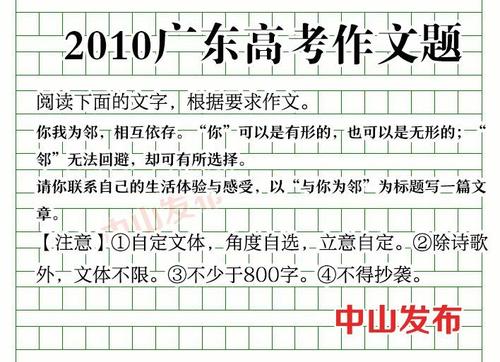 2010广东高考作文题
阅读下面的文字，根据要求作文。
你我为邻，相互依存。“你”可以是有形的，也可以是无形的；“
邻”无法回避，却可有所选择。
请你联系自己的生活体验与感受，以“与你为邻”为标题写一篇文
章。
中山发布
【注意】①自定文体，角度自选，立意自定。②除诗歌
外，文体不限。③不少于800字。④不得抄袭。
中山发布